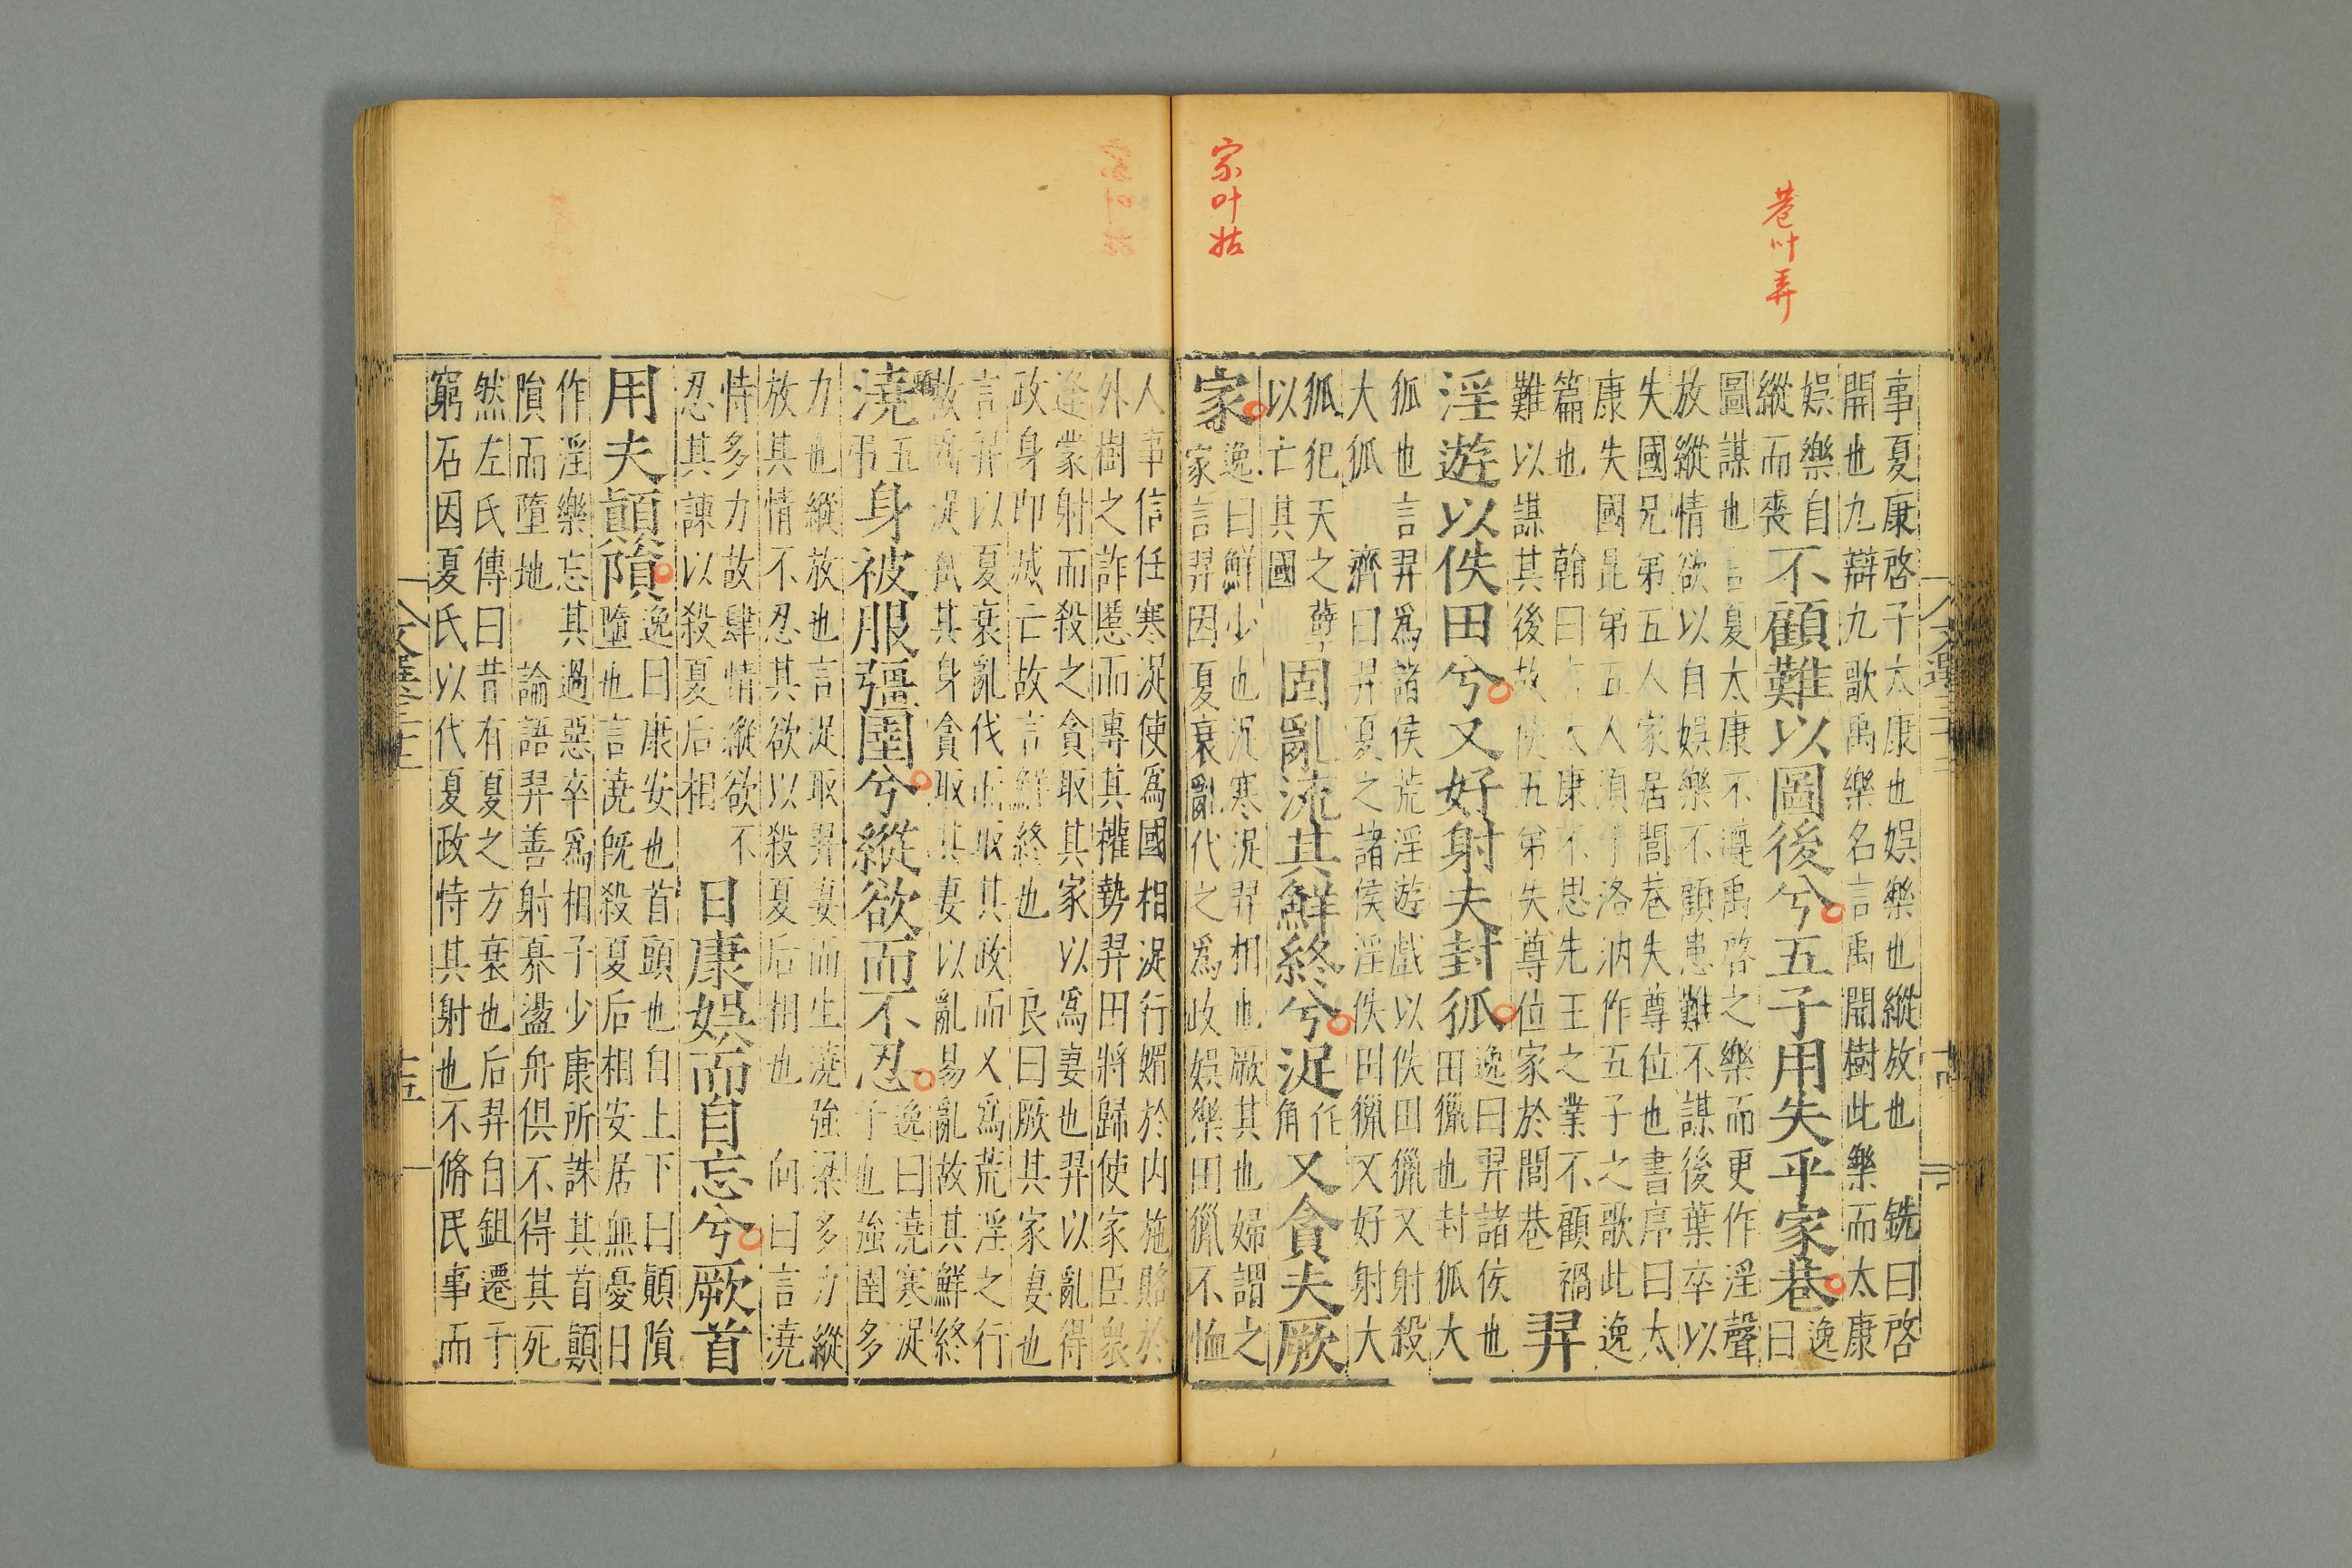 巷叶弄
家叶姑
事夏康啓子太康也娛樂也縱放也 銑曰啓
開也九辯九歌禹樂名言禹開樹此樂而太康
娛樂自
縱而喪
不顧難以圖後兮五子用失乎家巷
逸
曰
圖謀也言夏太康不遵禹啓之樂而更作淫聲
放縱情欲以自娛樂不顧患難不謀後葉卒以
失國兄弟五人家居閭巷失尊位也書序曰太
康失國昆弟五人須于洛汭作五子之歌此逸
篇也 翰曰 太康不思先王之業不顧禍
難以謀其後故使五弟失尊位家於閭巷
羿
淫遊以佚田兮又好射夫封狐
逸曰羿諸侯也
田獵也封狐大
狐也言羿爲諸侯荒淫遊戲以佚田獵又射殺
大狐 濟曰羿夏之諸侯淫佚田獵又好射大
狐犯天之孽
以亡其國
固亂流其鮮終兮浞
作
角
又貪夫厥
家
逸曰鮮少也浞寒浞羿相也厥其也婦謂之
家言羿因夏衰亂代之爲政娛樂田獵不恤
人事信任寒浞使爲國相浞行媚於内施賂於
外樹之詐慝而專其權勢羿田將歸使家臣衆
逄蒙射而殺之貪取其家以爲妻也羿以亂得
政身即滅亡故言鮮終也 良曰厥其家妻也
言羿以夏衰亂伐而取其政而又爲荒淫之行
故寒浞弒其身貪取其妻以亂易亂故其鮮終
澆
五
弔
身被服彊圉兮縱欲而不忍
逸曰澆寒浞
子也強圉多
力也縱放也言浞取羿妻而生澆強梁多力縱
放其情不忍其欲以殺夏后相也 向曰言澆
恃多力故肆情縱欲不
忍其諫以殺夏后相
日康娛而自忘兮厥首
用夫顚隕
逸曰康安也首頭也自上下曰顚隕
墮也言澆既殺夏后相安居無憂日
作淫樂忘其過惡卒爲相子少康所誅其首顚
隕而墮地 論語羿善射奡盪舟俱不得其死
然左氏傳曰昔有夏之方衰也后羿自鉏遷于
窮石因夏氏以代夏政恃其射也不脩民事而
十五